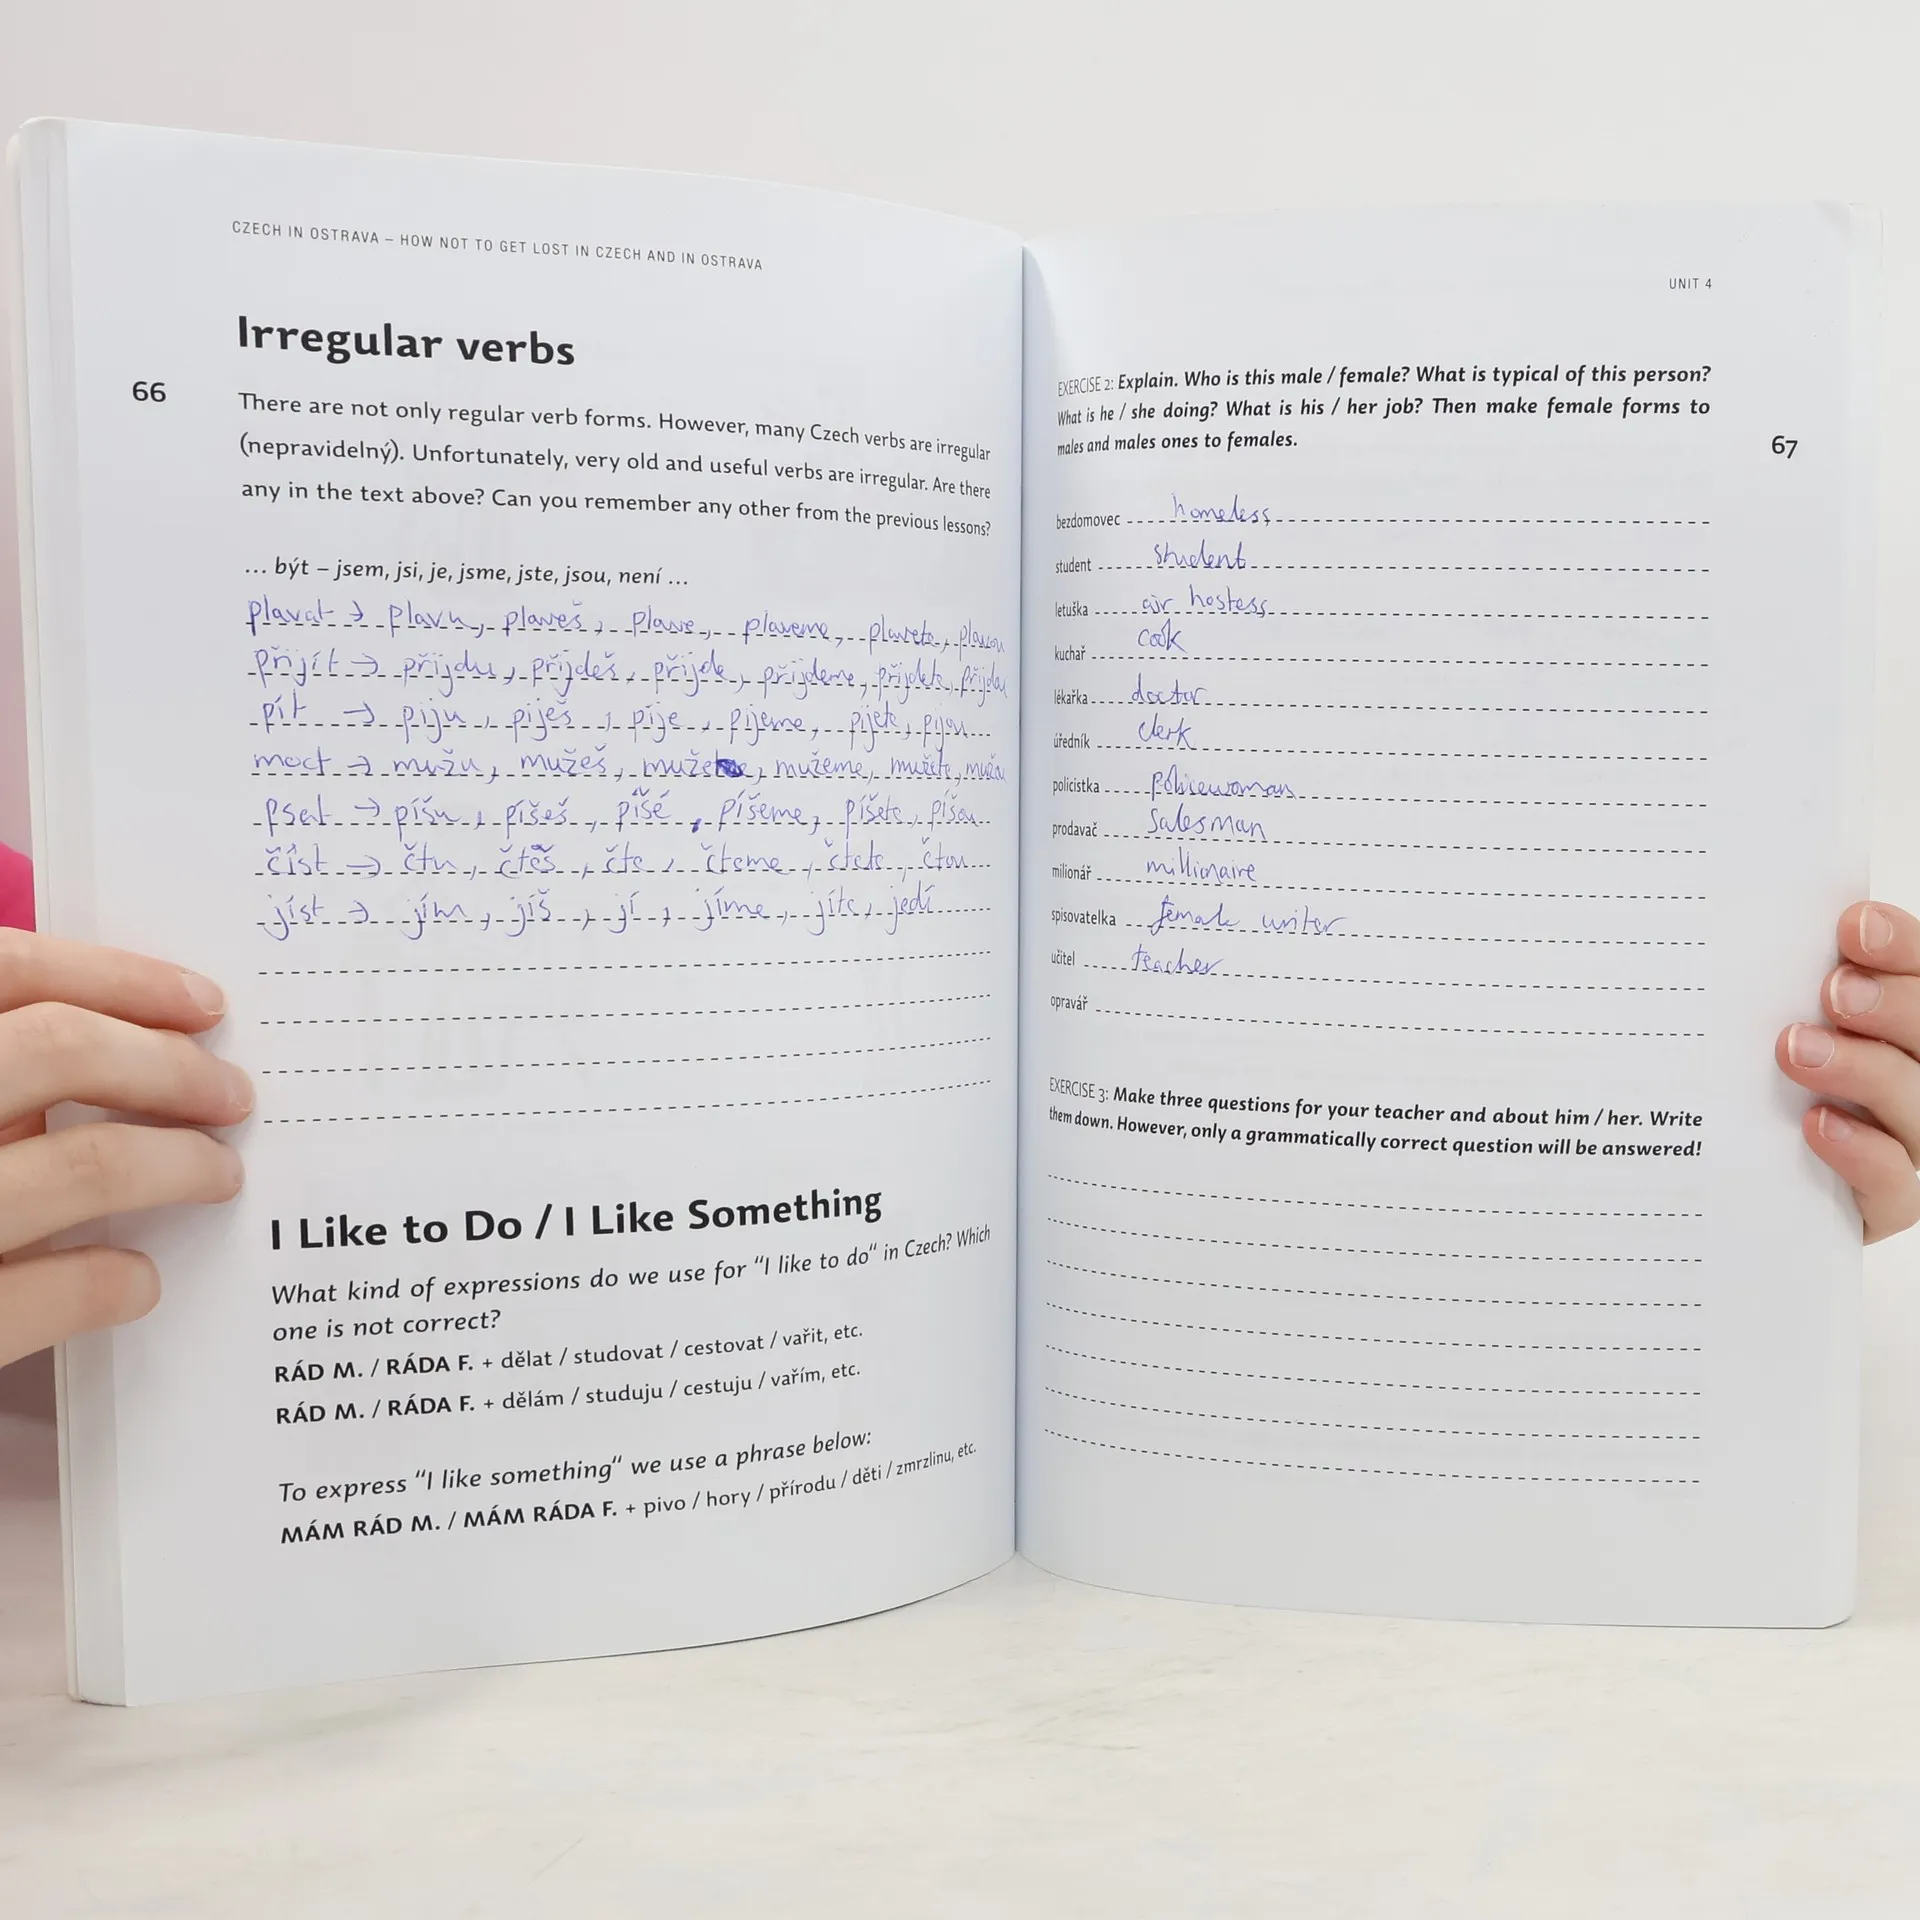 CZECH IN OSTRAVA – HOW NOT TO GET LOST IN CZECH AND IN OSTRAVA
Irregular verbs
66
There are not only regular verb forms. However, many Czech verbs are irregular
(nepravidelný). Unfortunately, very old and useful verbs are irregular. Are there
any in the text above? Can you remember any other from the previous lessons?
... být – jsem, jsi, je, jsme, jste, jsou, není ...
plavat → plavu, plaveš, plave, plaveme, plavete, plavou
přijít → přijdu, přijdeš, přijde, přijdeme, přijdete, přijdou
pít → piju, piješ, pije, pijeme, pijete, pijou
moct → mužu, mužeš, muže, mužeme, mužete, mužou
psat → píšu, píšeš, píšé, píšeme, píšete, píšou
číst → čtu, čtěš, čte, čteme, čtete, čtou
jíst → jím, jíš, jí, jíme, jíte, jedí
I Like to Do / I Like Something
What kind of expressions do we use for "I like to do“ in Czech? Which
one is not correct?
RÁD M. / RÁDA F. + dělat / studovat / cestovat / vařit, etc.
RÁD M. / RÁDA F. + dělám / studuju / cestuju / vařím, etc.
To express "I like something“ we use a phrase below:
MÁM RÁD M. / MÁM RÁDA F. + pivo / hory / přírodu / děti / zmrzlinu, etc.
UNIT 4
EXERCISE 2: Explain. Who is this male / female? What is typical of this person?
What is he / she doing? What is his / her job? Then make female forms to
males and males ones to females.
67
bezdomovec homeless
student student
letuška air hostess
kuchař cook
lékařka doctor
úředník clerk
policistka policewoman
prodavač salesman
milionář millionaire
spisovatelka female writer
učitel teacher
opravář
EXERCISE 3: Make three questions for your teacher and about him / her. Write
them down. However, only a grammatically correct question will be answered!